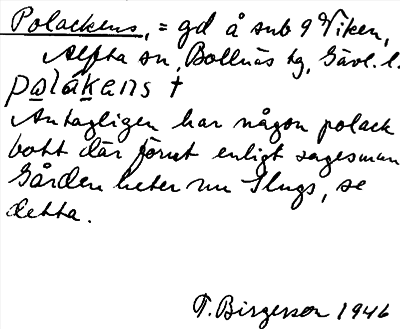 Polackens, = gd å sub 9 Viken,
Alfta sn, Bollnäs tg, Gävl. l.
palakens †
Antagligen har någon polack
bott där förut enligt sagesman
Gården heter nu Slugs, se
detta.
T. Birgerson 1946